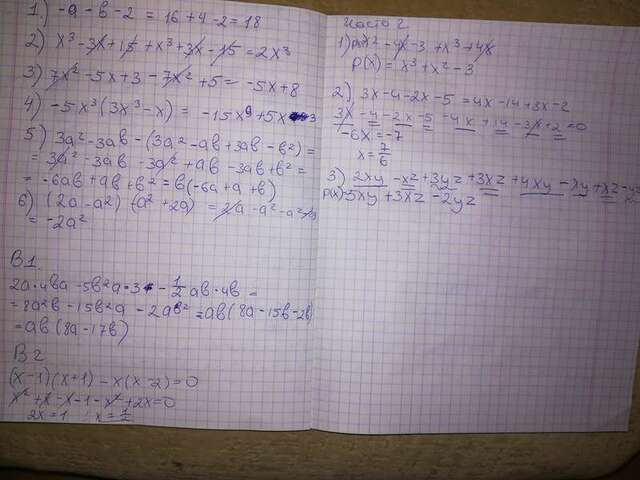 1.) -a-в-2 = 16+4-2=18
2) x³-3x+15+x³+3x-15=2x³
3) 7x²-5x+3-7x²+5=-5x+8
4) -5x³(3x³-x) = -15x⁹+5x³
5) 3a²-3aв-(3a²-aв+3aв-в²)=
= 3a²-3aв-3a²+aв-3aв+в²=
= -6aв+aв+в²=в(-6a+a+в)
6) (2a-a²)-(a²+2a)=2a-a²-a²-2a
= -2a²
В1.
2a·4вa-5в²a·3-1/2aв·4в=
=8a²в-15в²a-2aв²=aв(8a-15в-2в)
=aв(8a-17в)
В2
(x-1)(x+1)-x(x-2)=0
x²+x-x-1-x²+2x=0
2x=1 x=1/2
Часть 2
1) x²-4x-3+x³+4x
P(x)=x³+x²-3
2) 3x-4-2x-5=4x-14+3x-2
3x-4-2x-5-4x+14-3x+2=0
-6x=-7
x=7/6
3) 2xy-xz+3yz+3xz+4xy-xy+xz-
P(x)=5xy+3xz-2yz